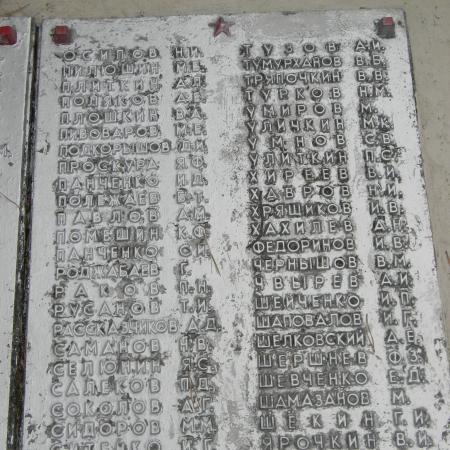 ОСИПОВ Н.И.
ПИЛЮШИН М.Е.
ПЛИТКИН А.Я.
ПОЛЯКОВ А.Д.
ПЛОШКИН В.А.
ПИВОВАРОВ И.Е.
ПОДКОРЫШОВ Д.И.
ПРОСКУРА Я.Ф.
ПАНЧЕНКО И.Д.
ПОЛЕЖАЕВ В.Т.
ПАВЛОВ А.И.
ПОМЕШИН К.С.
ПАНЧЕНКО С.И.
РОДЖАБАЕВ Г.
РАКОВ П.Н.
РУСАНОВ Т.И.
РАССКАЗЧИКОВ А.Д.
САМАНОВ Н.В.
СЕЛОНИН Я.С.
САЛЕКОВ П.Д.
СОКОЛОВ А.Г.
СИДОРОВ М.М.
СИТЕНКО
ТУЗОВ А.И.
ТУМУРХАНОВ В.Б.
ТРЯПОЧКИН В.В.
ТУРКОВ Н.М.
УМИРОВ М.
УЛИЧКИН М.К.
УМНОВ С.В.
УЛИТКИН П.С.
ХИРЬЕВ В.И.
ХАВРОВ Н.И.
ХРЯЩИКОВ И.В.
ХАХИЛЕВ А.П.
ФЕДОРИНОВ И.В.
ЧЕРНЫШОВ В.М.
ЧВЫРЕВ А.И.
ШЕЙЧЕНКО И.П.
ШАПОВАЛОВ И.Г.
ШЕЛКОВСКИЙ А.Е.
ШЕРШНЕВ Ф.З.
ШЕВЧЕНКО Е.Д.
ШАМАЗАНОВ М.
ЩЕКИН Г.И.
ЯРОЧКИН В.И.